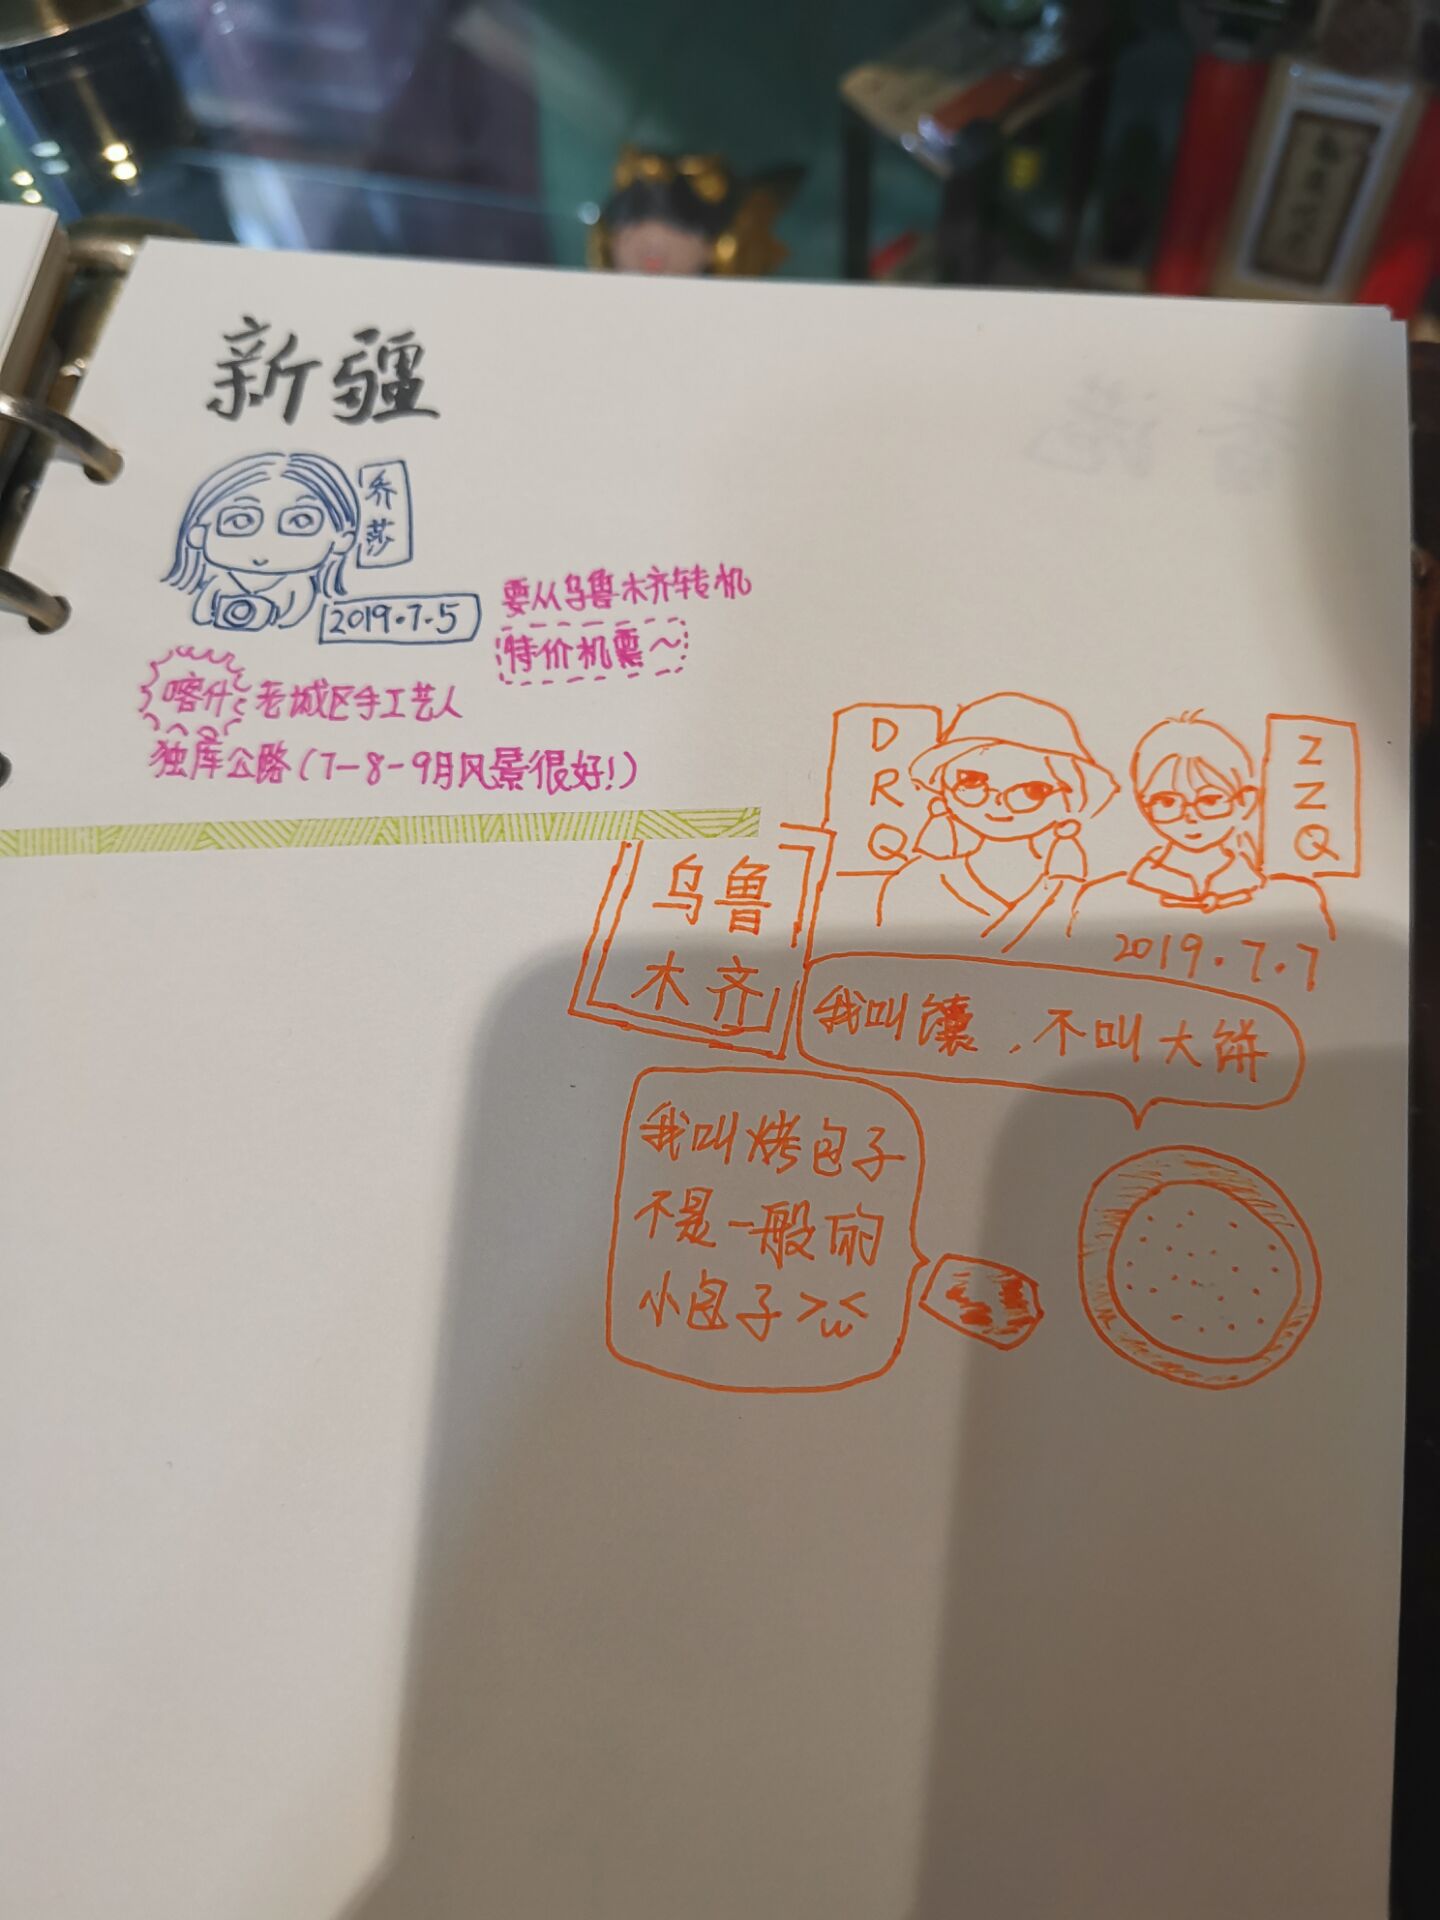 新疆
乔
莎
2019.7.5
要从乌鲁木齐转机
特价机票～
喀什 老城区手工艺人
独库公路(7-8-9月风景很好!)
D
R
Q
Z
Z
Q
2019.7.7
乌鲁
木齐
我叫馕，不叫大饼
我叫烤包子
不是一般的
小包子>ω<